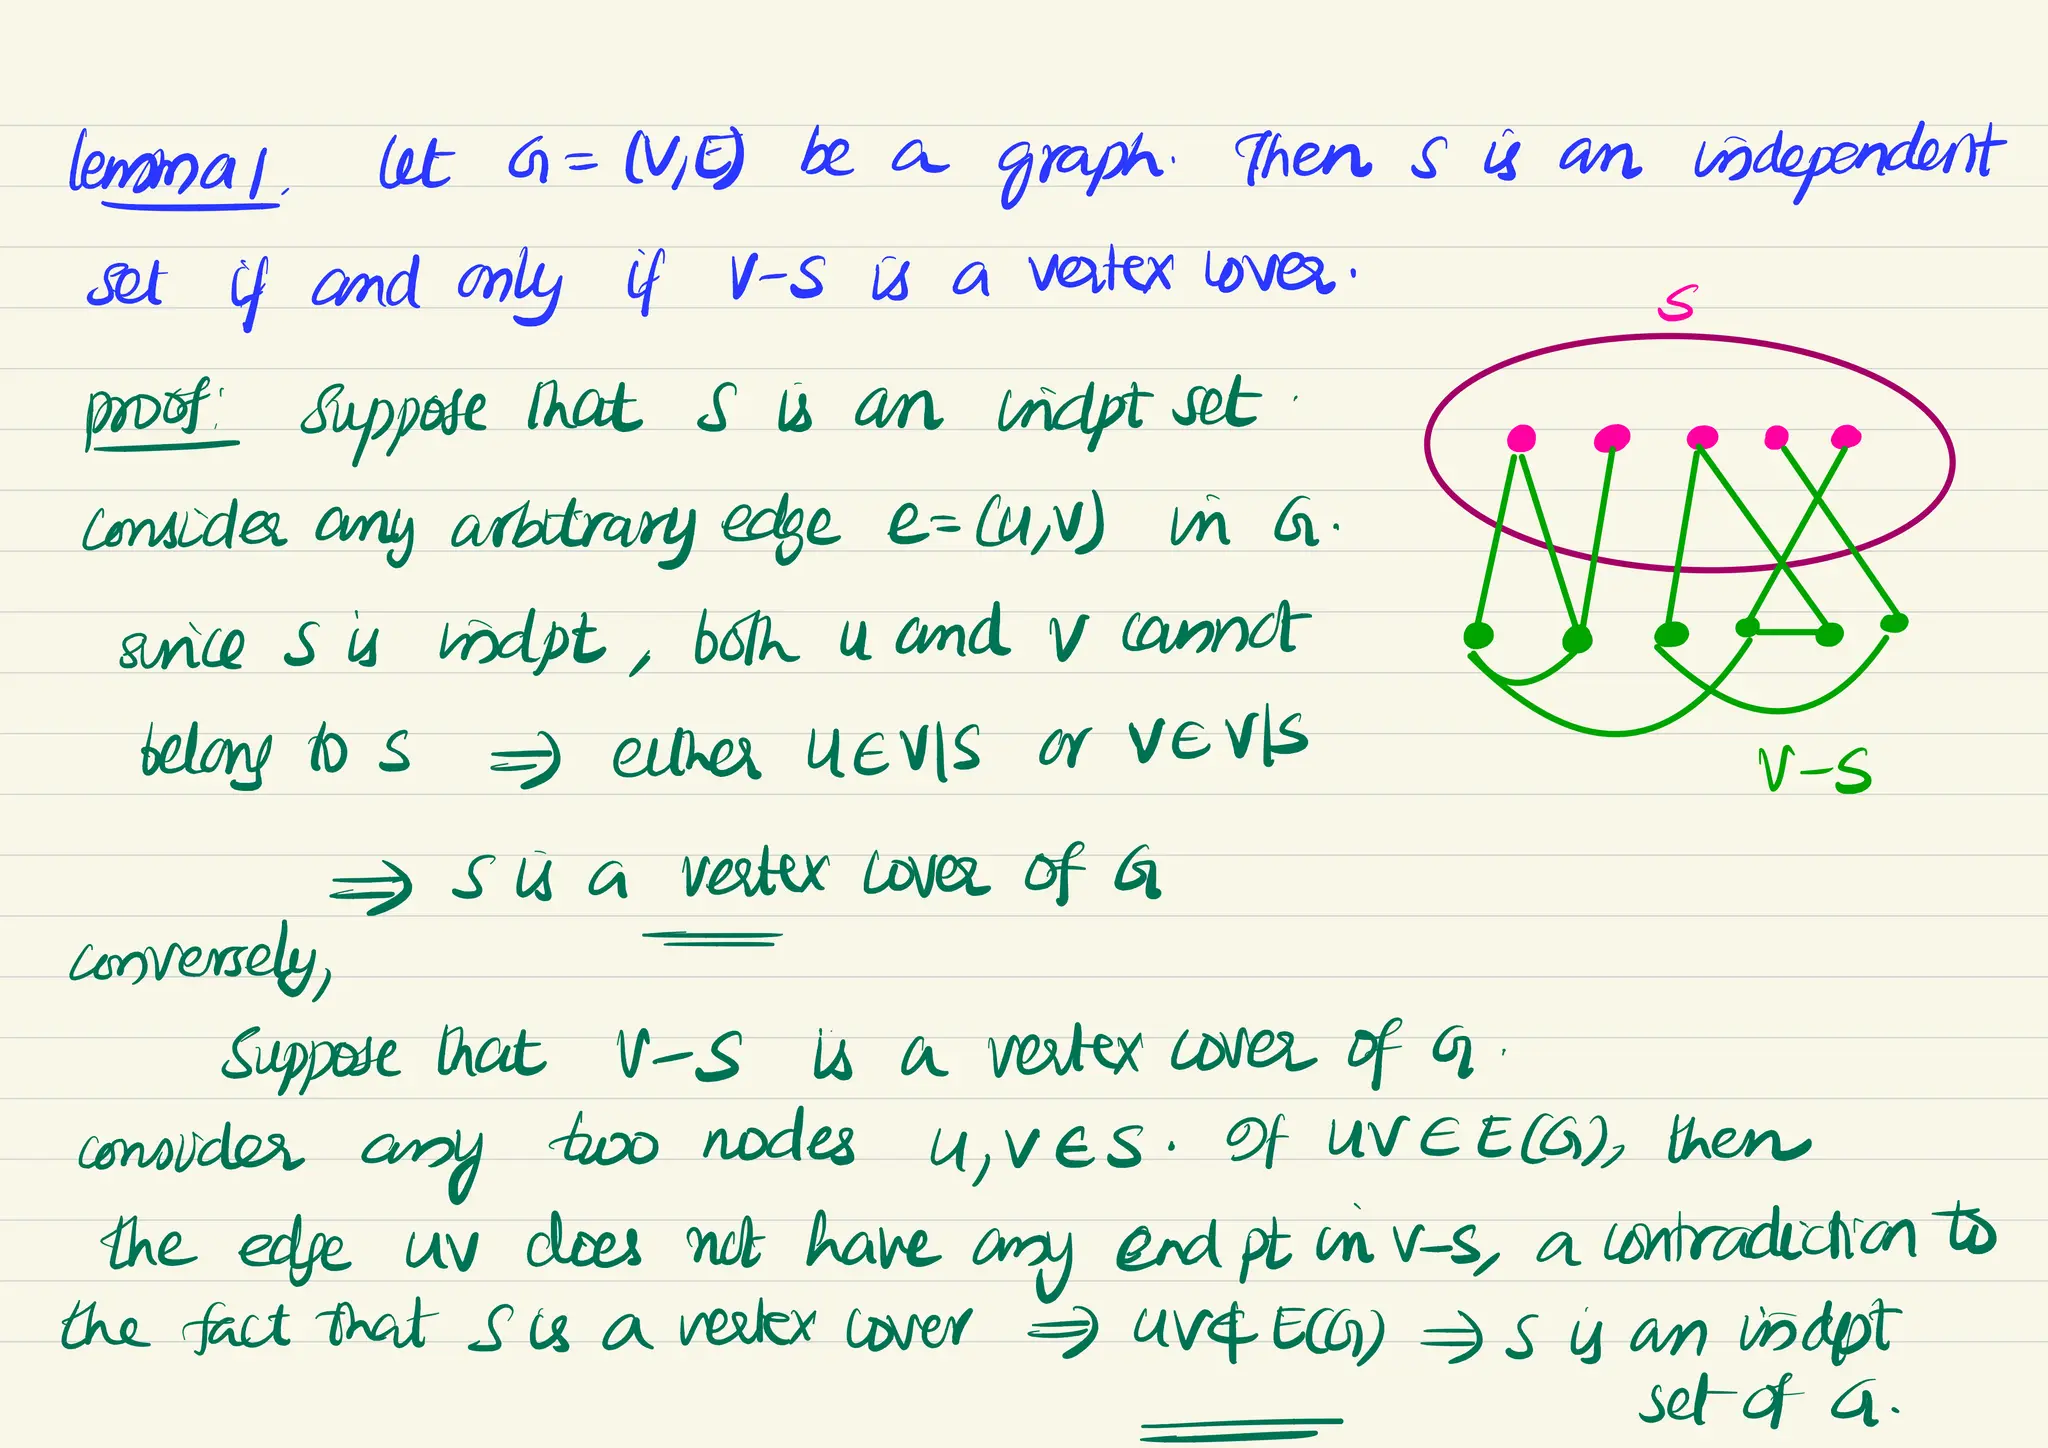 lemma 1. let G = (V,E) be a graph. Then S is an independent
set if and only if V-S is a vertex cover.
S
proof: Suppose that S is an indpt set.
consider any arbitrary edge e=(u,v) in G.
since S is indpt, both u and v cannot
belong to S ⇒ either u∈V|S or v∈V|S
V-S
⇒ S is a vertex cover of G
conversely,
Suppose that V-S is a vertex cover of G.
consider any two nodes u,v∈S. If uv∈E(G), then
the edge uv does not have any end pt in V-S, a contradiction to
the fact that S is a vertex cover ⇒ uv∉E(G) ⇒ S is an indpt
set of G.